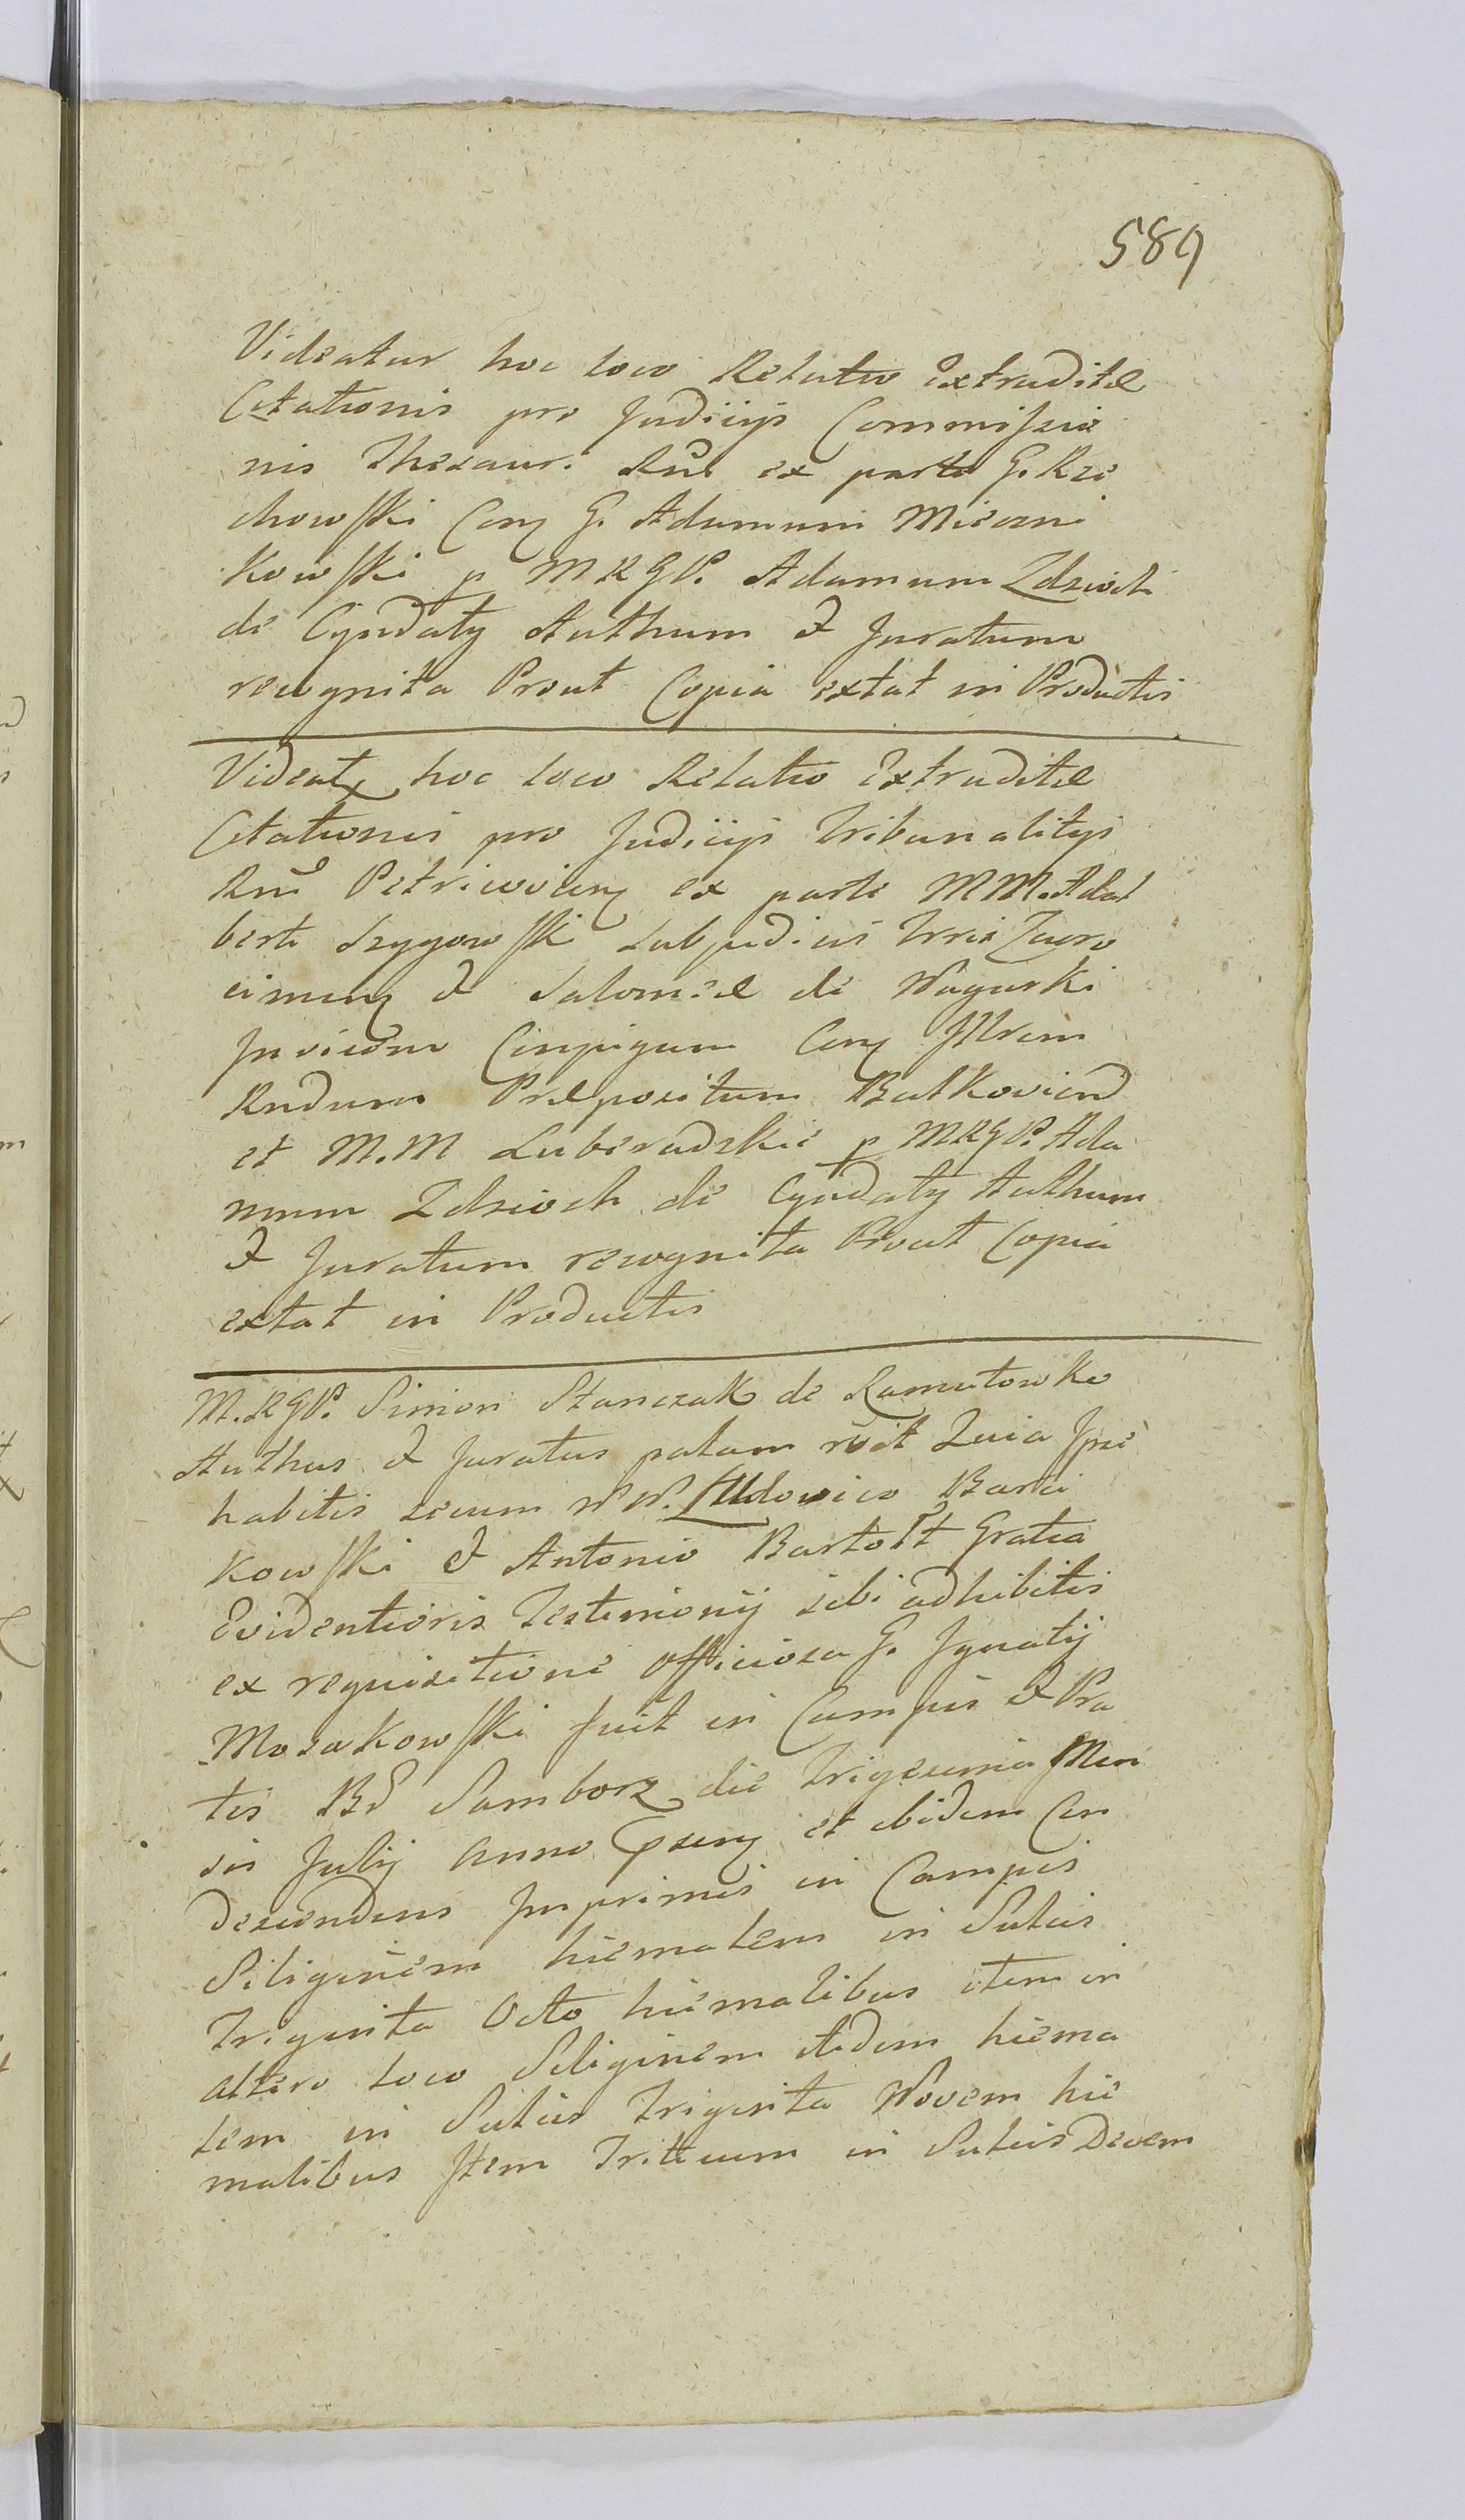 589
Videatur hoc loco Relatio Extraditæ
Citationis pro Judicijs Commissio
nis Thesaur. Rńi ex parte G. Rze
chowski Con G. Adamum Mieczni
kowski p MRGP. Adamum Zdzioch
de Cyndaty Authum & Juratum
recognita Prout Copia extat in Productis
Videat hoc loco Relatio Extraditæ
Citationis pro Judicijs Tribunalitijs
Rńi Petricovien ex parte MM. Adal
berti Szygowski Subjudicis Trris Zacro
cimen & Salomeæ de Nagurki
Invicem Conjugum Con Illrem
Rndum Præpositum Bulkoviens
et M.M Luberadzkie p MRGP. Ada
mum Zdzioch de Cyndaty Authum
& Juratum recognita Prout Copia
extat in Productis
M.RGP. Simon Stanczak de Ramutowko
Authus & Juratus palam rōit Quia Ipse
habitis secum NN. Ludovico Barci
kowski & Antonio Bartołt Gratia
Evidentioris Testimonij sibi adhibitis
ex requisitione Officiosa G. Ignatij
Mosakowski fuit in Campis & Pra
tis Bd Samborz die Trigesima Men
sis Julij Anno Psen et ibidem Con
descendens Imprimis in Campis
Siliginem hiemalem in Sulcis
Triginta Octo hiemalibus item in
altero loco Siliginem itidem hiema
lem in Sulcis Triginta Novem hie
malibus Item Triticum in Sulcis Decem